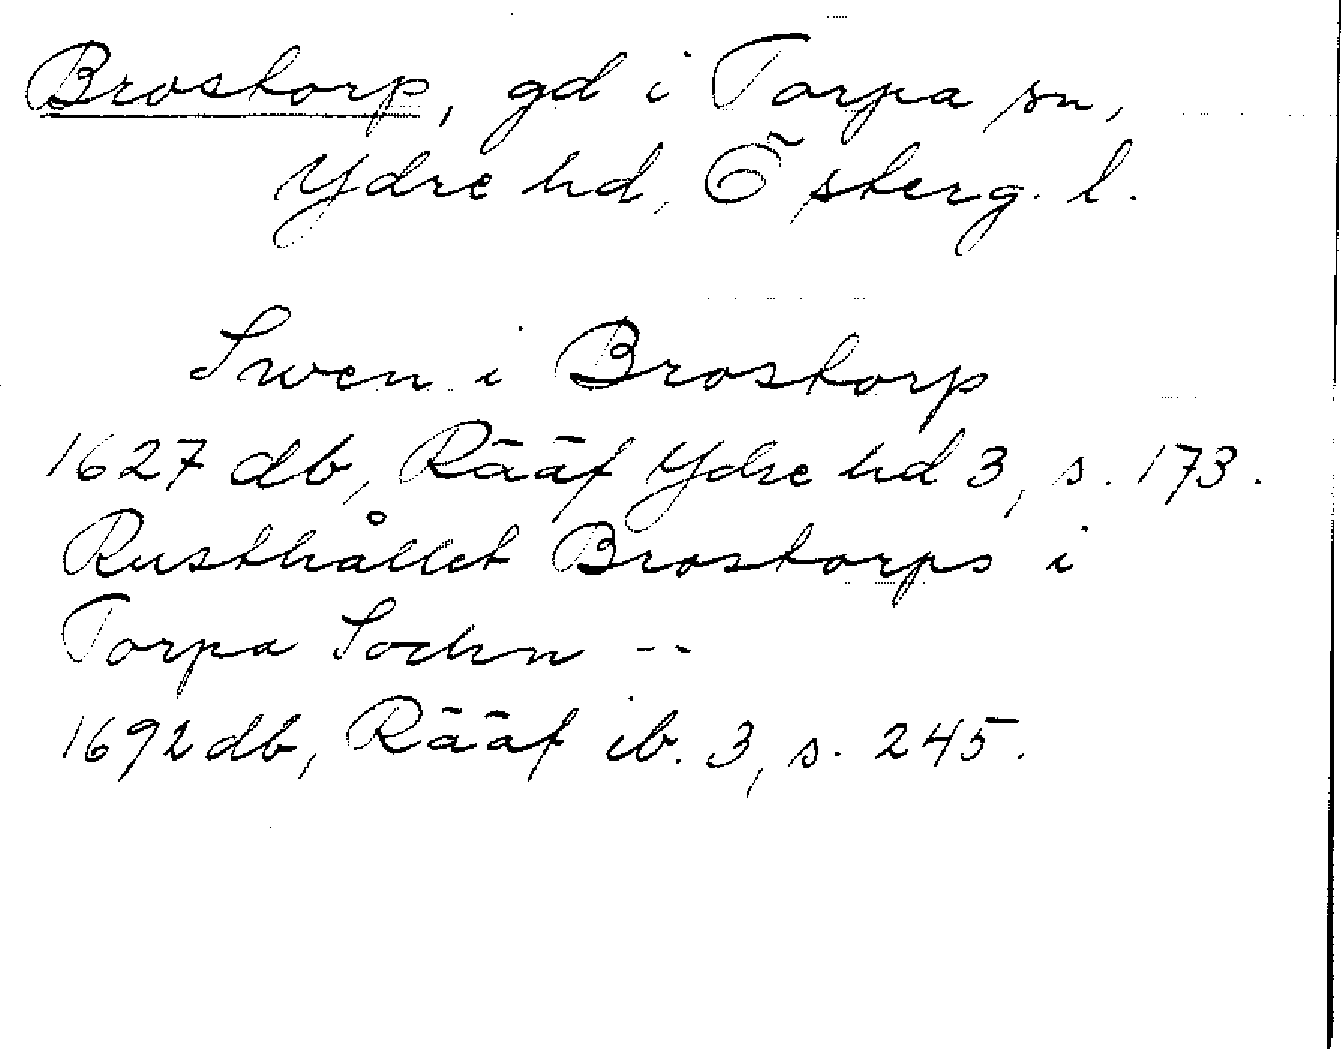 Brostorp, gd i Torpa sn,
Ydre hd, Österg. l.
Swen i Brostorp
1627 db, Rääf Ydre hd 3, s. 173.
Rusthållet Brostorps i
Torpa Sochn --
1692 db, Rääf ib. 3, s. 245.